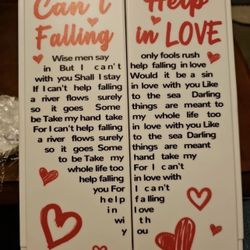 Can't
Falling
Wise men say
in But I can't
with you Shall I stay
If I can't help falling
a river flows surely
so it goes Some
be Take my hand take
For I can't help falling
a river flows surely
so it goes Some
to be Take my
whole life too
help falling
you For
help
in
wi
y
Help
in LOVE
only fools rush
help falling in love
Would it be a sin
in love with you Like
to the sea Darling
things are meant to
my whole life too
in love with you Like
to the sea Darling
things are meant
hand take my
For I can't
in love with
I can't
falling
love
th
ou